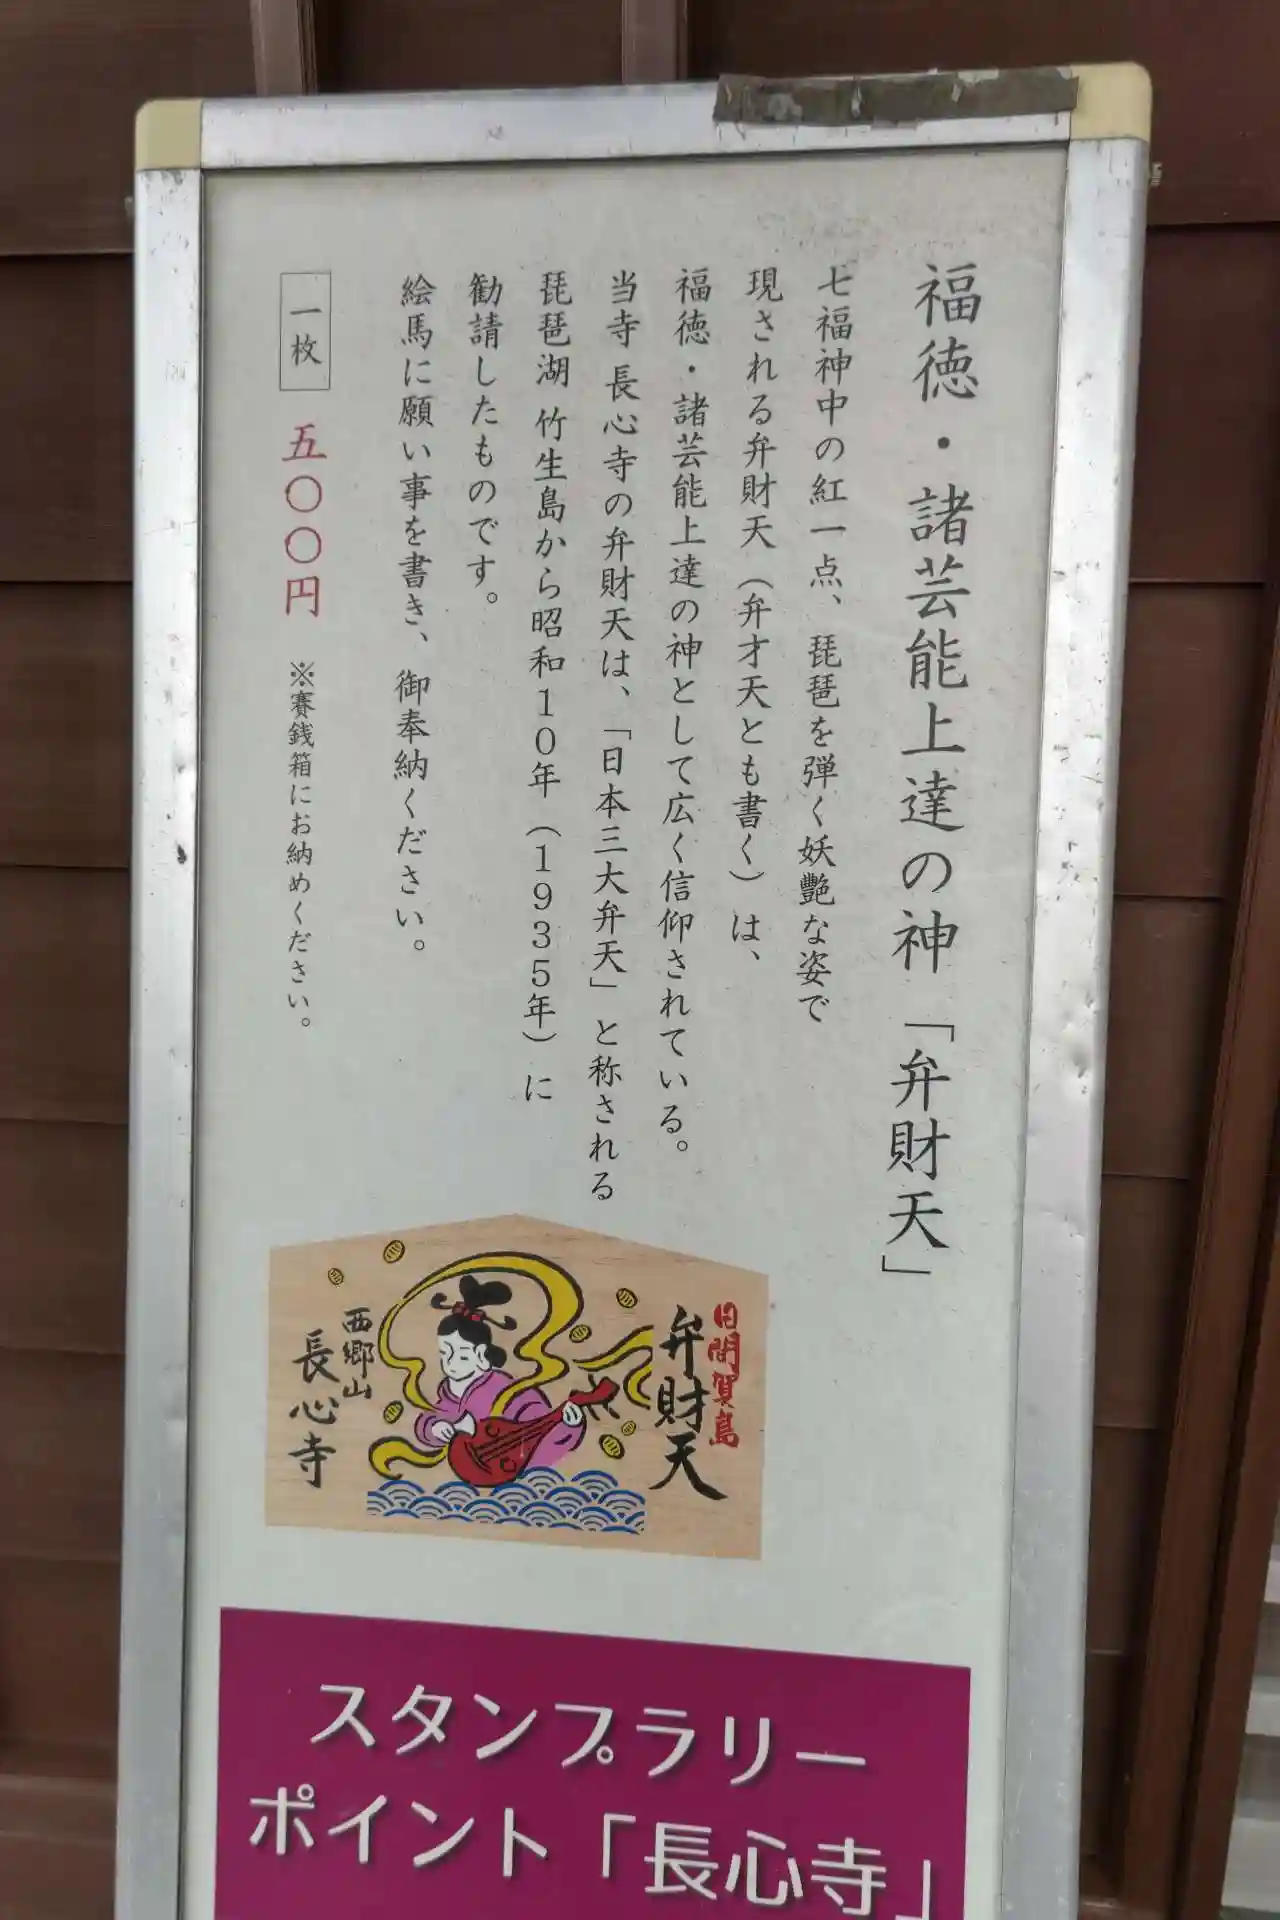 福徳・諸芸能上達の神「弁財天」
七福神中の紅一点、琵琶を弾く妖艶な姿で
現される弁財天（弁才天とも書く）は、
福徳・諸芸能上達の神として広く信仰されている。
当寺 長心寺の弁財天は、「日本三大弁天」と称される
琵琶湖 竹生島から昭和10年（1935年）に
勧請したものです。
絵馬に願い事を書き、御奉納ください。
一枚 五〇〇円 ※賽銭箱にお納めください。
日間賀島
弁財天
西郷山
長心寺
スタンプラリー
ポイント「長心寺」